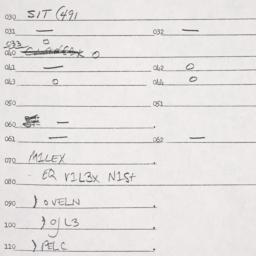 030 SIT (491
031 — 032 —
033 O
040 O
041 — 042 O
043 O 044 O
050 051
060 —
061 — 062 —
070 MILEX
080 - EQ V1L3X N1St
090 ) OVELN
100 ) OJL3
110 ) PELC